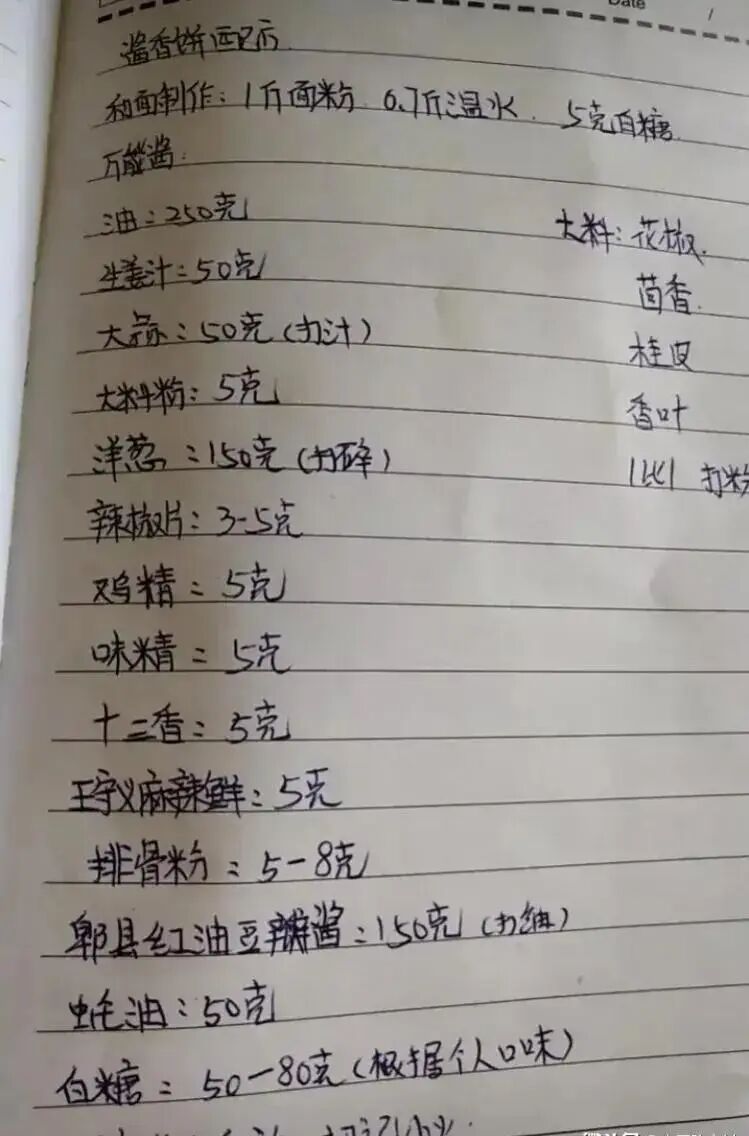 Date /
酱香饼配方
和面制作：1斤面粉 0.7斤温水. 5克白糖
万能酱.
油：250克
生姜汁：50克
大蒜：50克(打汁)
大料粉：5克
洋葱：150克(打碎)
辣椒片：3-5克
鸡精：5克
味精：5克
十三香：5克
王守义麻辣鲜：5克
排骨粉：5-8克
郫县红油豆瓣酱：150克(打细)
蚝油：50克
白糖：50-80克(根据个人口味)
大料：花椒.
茴香.
桂皮
香叶
1比1 打粉